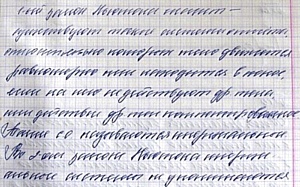 1-ый закон Ньютона гласит -
существуют такие системы отсчёта,
относительно которых тело движется
равномерно или находится в покое,
если на него не действуют др. тела,
или действие др. тел компенсировано
Такие с.о. называются инерциальными
Во закона Ньютона
системы не